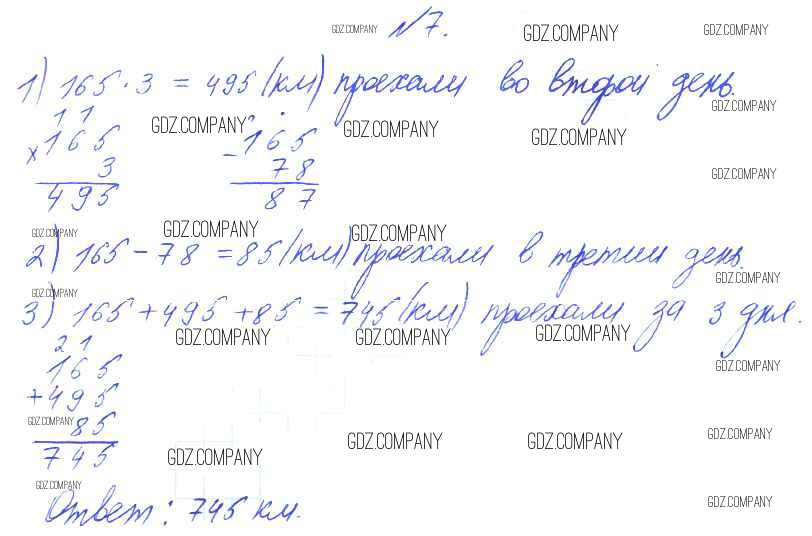 GDZ.COMPANY №7. GDZ.COMPANY GDZ.COMPANY
1) 165 · 3 = 495 (км) проехали во второй день.
GDZ.COMPANY
1 1 GDZ.COMPANY GDZ.COMPANY GDZ.COMPANY
×165 -165
3 78 GDZ.COMPANY
495 87
GDZ.COMPANY GDZ.COMPANY GDZ.COMPANY
2) 165 - 78 = 85 (км) проехали в третий день.
GDZ.COMPANY
GDZ.COMPANY
3) 165 + 495 + 85 = 745 (км) проехали за 3 дня.
2 1 GDZ.COMPANY GDZ.COMPANY GDZ.COMPANY
165 GDZ.COMPANY
+495
GDZ.COMPANY 85 GDZ.COMPANY GDZ.COMPANY GDZ.COMPANY
745 GDZ.COMPANY
GDZ.COMPANY
Ответ: 745 км. GDZ.COMPANY